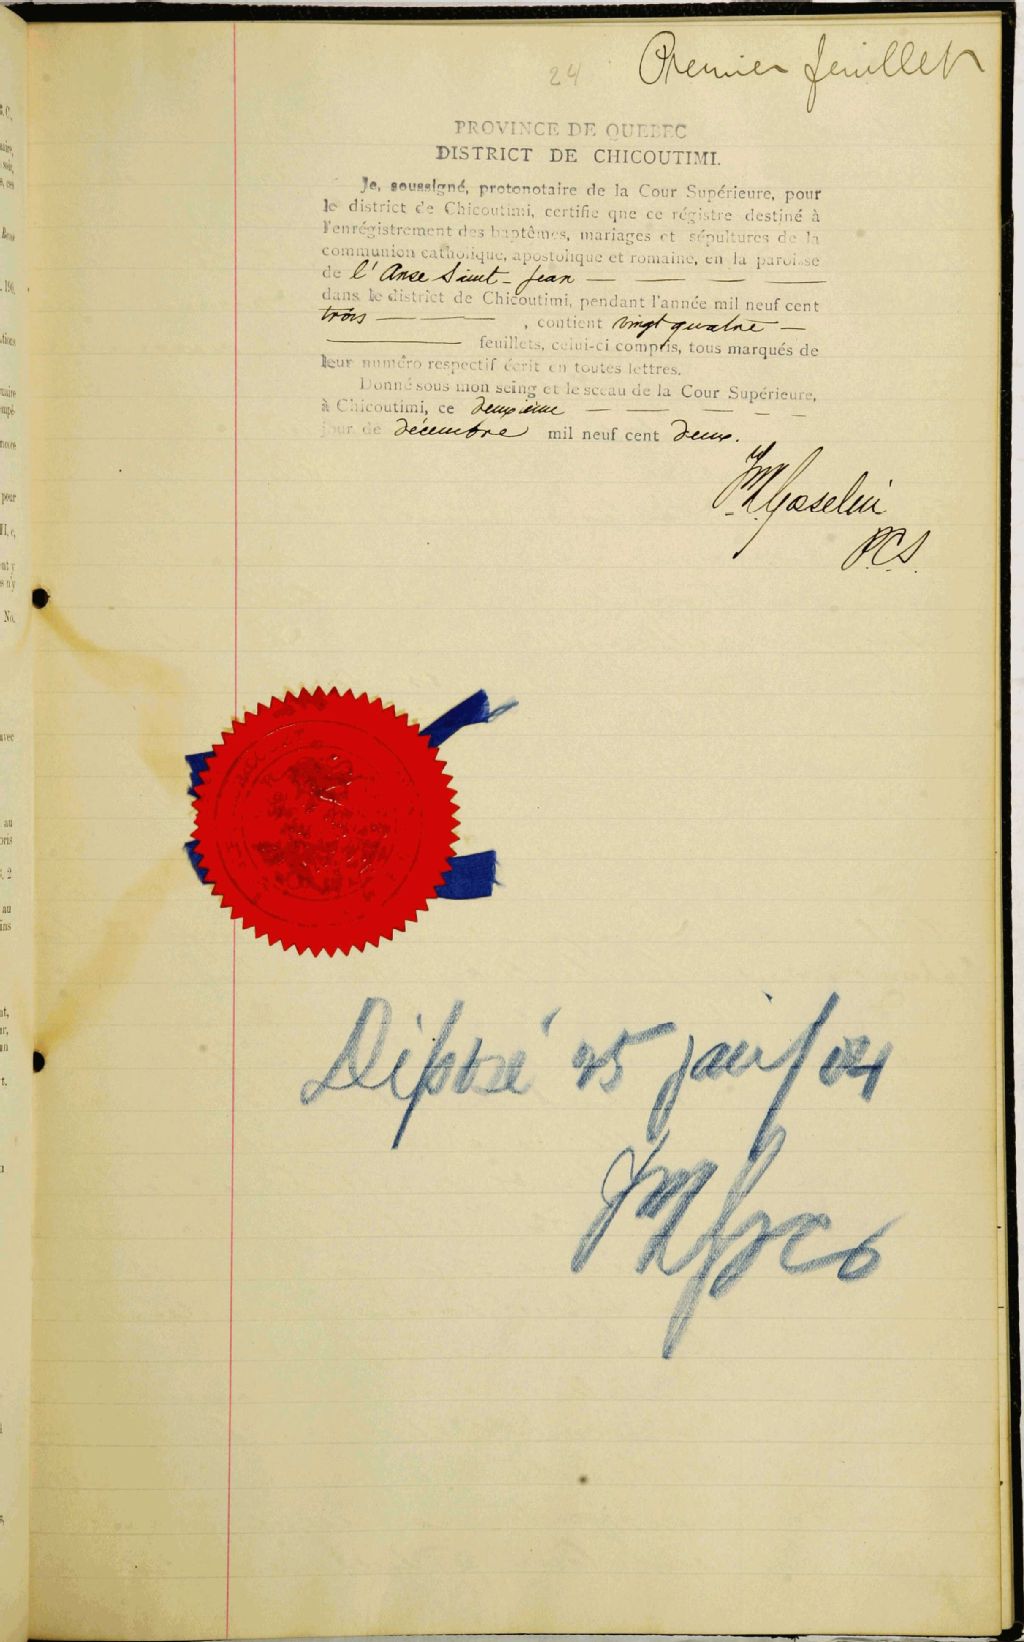 Premier feuillet
24
PROVINCE DE QUEBEC
DISTRICT DE CHICOUTIMI.
Je, soussigné, protonotaire de la Cour Supérieure, pour
le district de Chicoutimi, certifie que ce régistre destiné à
l'enrégistrement des baptêmes, mariages et sépultures de la
communion catholique, apostolique et romaine, en la paroisse
de l'Anse Saint-Jean — — — —
dans le district de Chicoutimi, pendant l'année mil neuf cent
trois — — — , contient vingt quatre —
— feuillets, celui-ci compris, tous marqués de
leur numéro respectif écrit en toutes lettres.
Donné sous mon seing et le sceau de la Cour Supérieure,
à Chicoutimi, ce deuxième — — — — —
jour de décembre mil neuf cent deux.
Gosselin
P.C.S.
Déposé 15 janv 04